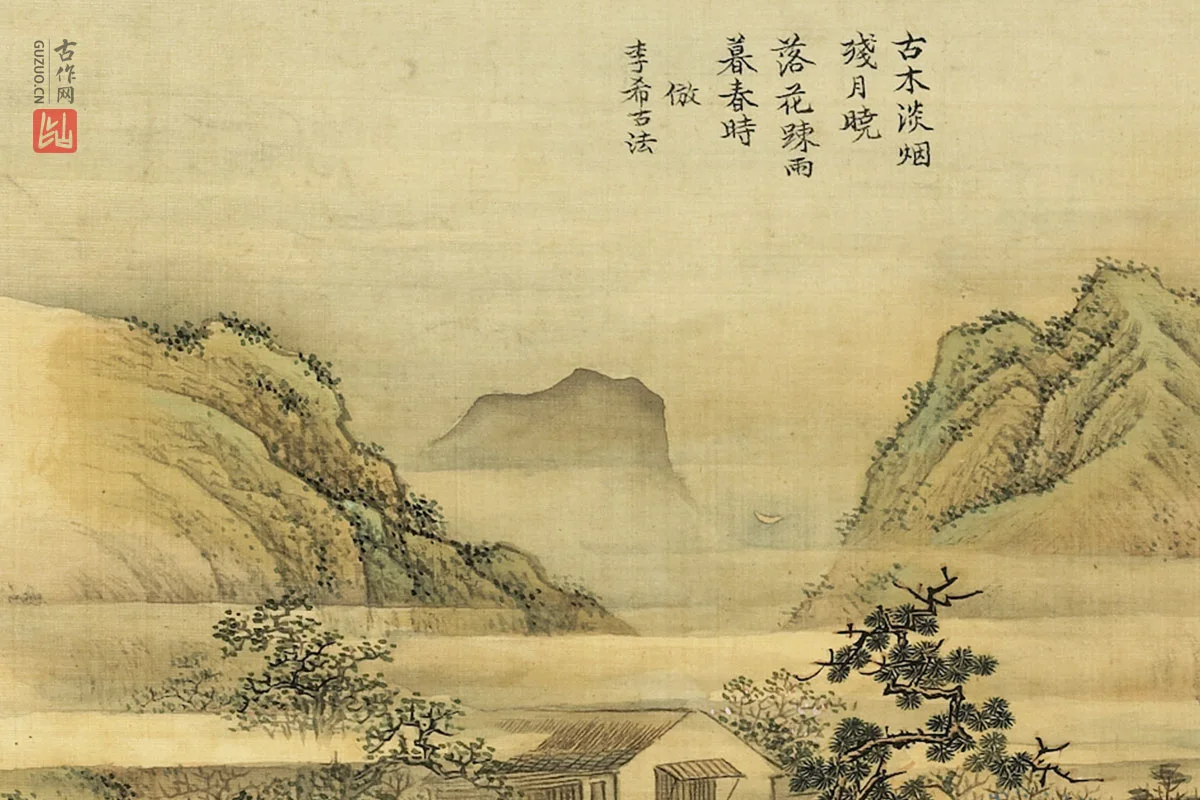 古木淡烟
残月曉
落花踈雨
暮春時
倣
李希古法
古作网
GUZUO.CN